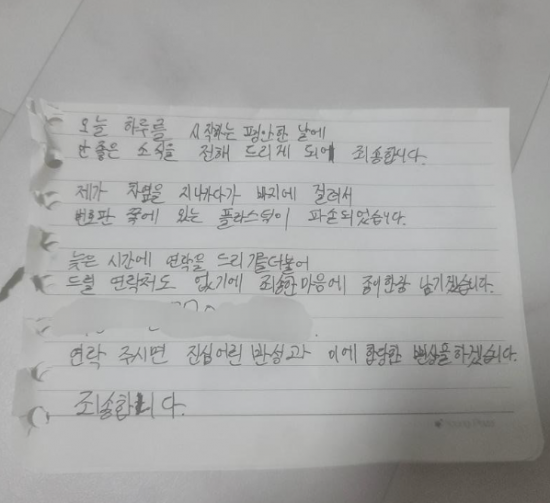 오늘 하루를 시작하는 평안한 날에
안 좋은 소식을 전해 드리게 되어 죄송합니다.
제가 차옆을 지나가다가 바지에 걸려서
번호판 쪽에 있는 플라스틱이 파손되었습니다.
늦은 시간에 연락을 드리기를더불어
드릴 연락처도 없기에 죄송한마음에 종이한장 남기겠습니다.
연락 주시면 진심어린 반성과 이에 합당한 변상을하겠습니다.
죄송합니다.